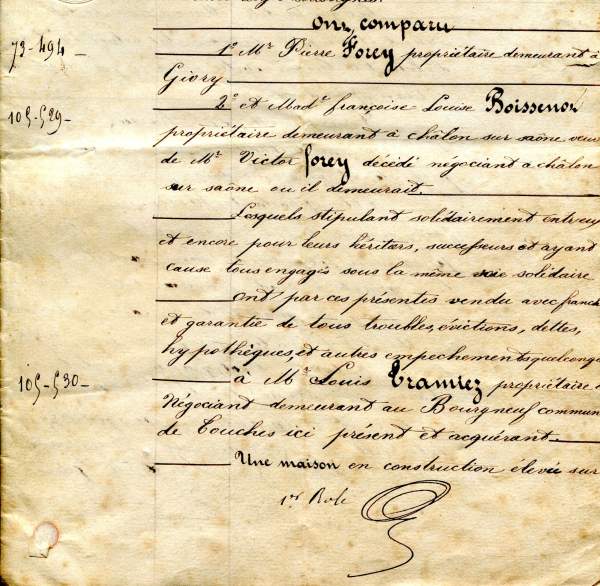 Ont comparu
73-494-
1º Mr Pierre Forey propriétaire demeurant à
Givry
105-529-
2º et Made françoise Louise Boissenot
propriétaire demeurant à châlon sur saône veuve
de Mr Victor forey décédé négociant a châlon
sur saône ou il demeurait.
Lesquels stipulant solidairement entr'eux
et encore pour leurs héritiers, successeurs et ayant
cause tous engagés sous la même solidaire
Ont par ces présentes vendu avec franch
et garantie de tous troubles, évictions, dettes,
hypothèques, et autres empechements quelconq
105-530-
à Mr Louis Tramiez propriétaire
Négociant demeurant au Bourgneuf commun
de Touches ici présent et acquérant.
Une maison en construction élevée sur
1er Role